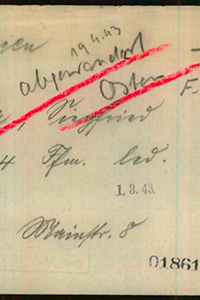 19.4.43
abgewandert
Osten
F.
Siegfried
4 Ffm. led.
1.3.43.
Mainstr. 8
01861